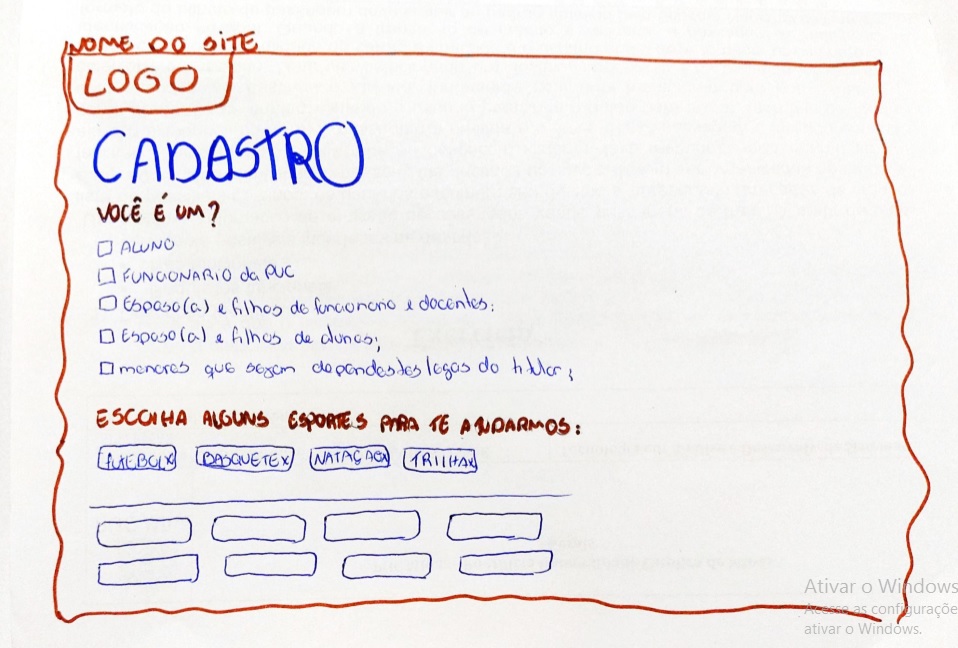 NOME DO SITE
LOGO
CADASTRO
VOCÊ É UM?
ALUNO
FUNCIONARIO da PUC
Esposo(a) e filhos de funcionario e docentes;
Esposo(a) e filhos de alunos;
menores que sejam dependestes legas do titular;
ESCOLHA ALGUNS ESPORTES PARA TE AJUDARMOS:
FUTEBOL X BASQUETE X NATAÇAO TRILHA X
Ativar o Windows
Acesse as configuraçõe
ativar o Windows.